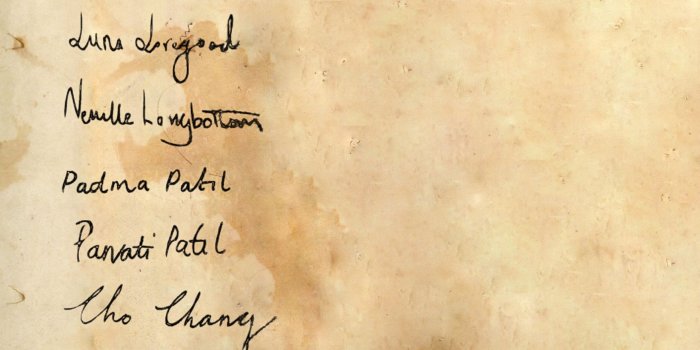 Luna Lovegood
Neville Longbottom
Padma Patil
Parvati Patil
Cho Chang